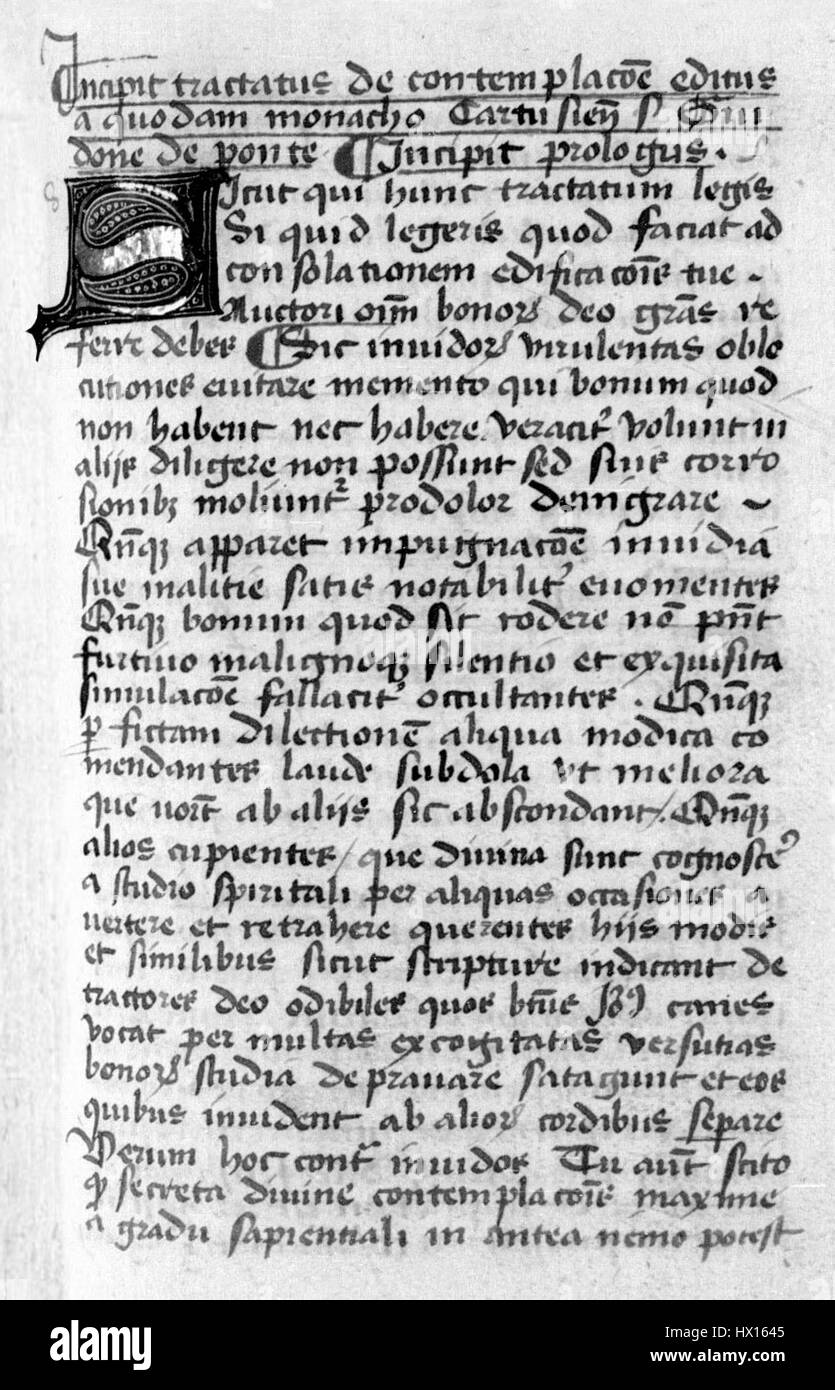 Incipit tractatus de contemplacõe editus
a quodam monacho Cartusieñ s. Gwi
done de ponte ¶ Incipit prologus.
Sicut qui hunc tractatum legis
Si quid legeris quod faciat ad
consolationem edificacõis tue
Auctori oim̃ bonorꝝ deo grãs re
ferre debes ¶ Sic invidorꝝ virulentas oblo
cutiones evitare memento qui bonum quod
non habent nec habere veracit̾ volunt in
aliis diligere non possunt sed suis corro
sionibꝫ moliunt̾ prodolor denigrare
Qñqꝫ apparet impugnacõe invidia
sue malitie satis notabilit̾ evomentes
Qñqꝫ bonum quod sit rodere nõ pñt
furtivo malignoqꝫ silentio et exquisita
simulacõe fallacit̾ occultantes. Qñqꝫ
ꝑ fictam dilectionẽ aliqua modica co
mendantes laude subdola ut meliora
que norũt ab aliis sic abscondant/. Qñqꝫ
alios cupientes/ que divina sunt cognosce̾
a studio spiritali per aliquas occasiones a
vertere et retrahere querentes hiis modis
et similibus sicut scripture indicant de
tractores deo odibiles quos btũs Job canes
vocat per multas excogitatas versutias
bonorꝝ studia depravare satagunt et eos
quibus invident ab aliorꝝ cordibus separe
Verum hoc cont̾ invidos Tu aut̃ scito
ꝙ secreta divine contemplacõis maxime
a gradu sapientiali in antea nemo potest
alamy stock photo
HX1645
www.alamy.com